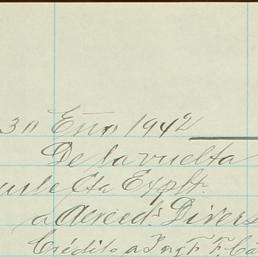 30 Eno 1942
De la vuelta
Cta Explt.
a Acreeds Divers
Crédito a Ing F. F.